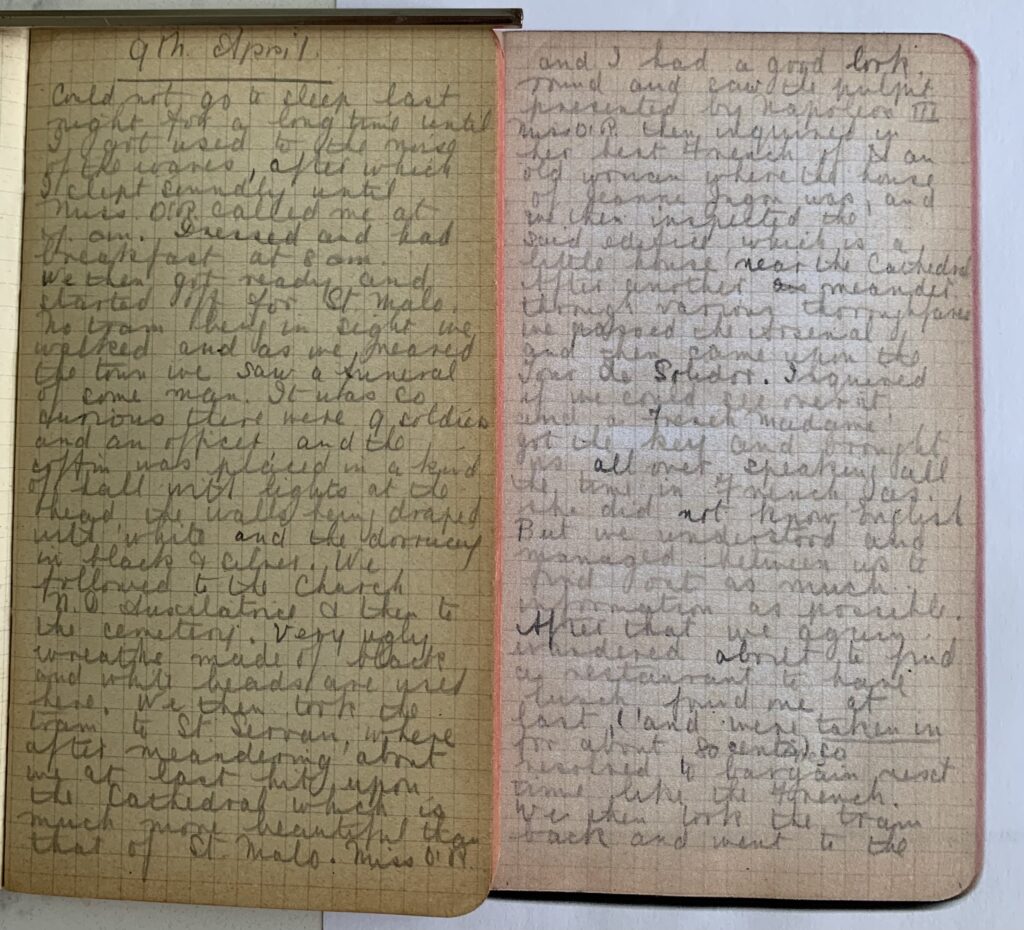 9th April.
Could not go to sleep last
night for a long time until
I got used to the noise
of the waves, after which
I slept soundly until
Miss O.R. called me at
7. am. Dressed and had
breakfast at 8 am.
We then got ready and
started off for St Malo.
No tram being in sight we
walked and as we neared
the town we saw a funeral
of some man. It was so
curious there were 9 soldiers
and an officer and the
coffin was placed in a kind
of hall with lights at the
head, the walls being draped
with white and the doorway
in black & silver. We
followed to the Church
N.D Auxilatrice & then to
the cemetery. Very ugly
wreaths made of black
and white beads are used
here. We then took the
tram to St. Servan, where
after meandering about
we at last hit upon
the Cathedral which is
much more beautiful than
that of St Malo. Miss O.R.
and I had a good look
round and saw the pulpit
presented by Napoleon III
Miss O.R. then inquired in
her best French of an
old woman where the house
of Jeanne Jugon was, and
we then inspected the
said edifice which is a
little house near the Cathedral
After another meander
through various thoroughfares
we passed the Arsenal
and then came upon the
Tour de Solidor. Inquired
if we could see over it.
and a French Madame
got the key and brought
us all over, speaking all
the time in French as
she did not know English
But we understood and
managed between us to
find out as much
information as possible.
After that we again
wandered about to find
a restaurant to have
lunch, found one at
last, and were taken in
for about 80 cents, so
resolved to bargain next
time like the French.
We then took the tram
back and went to the